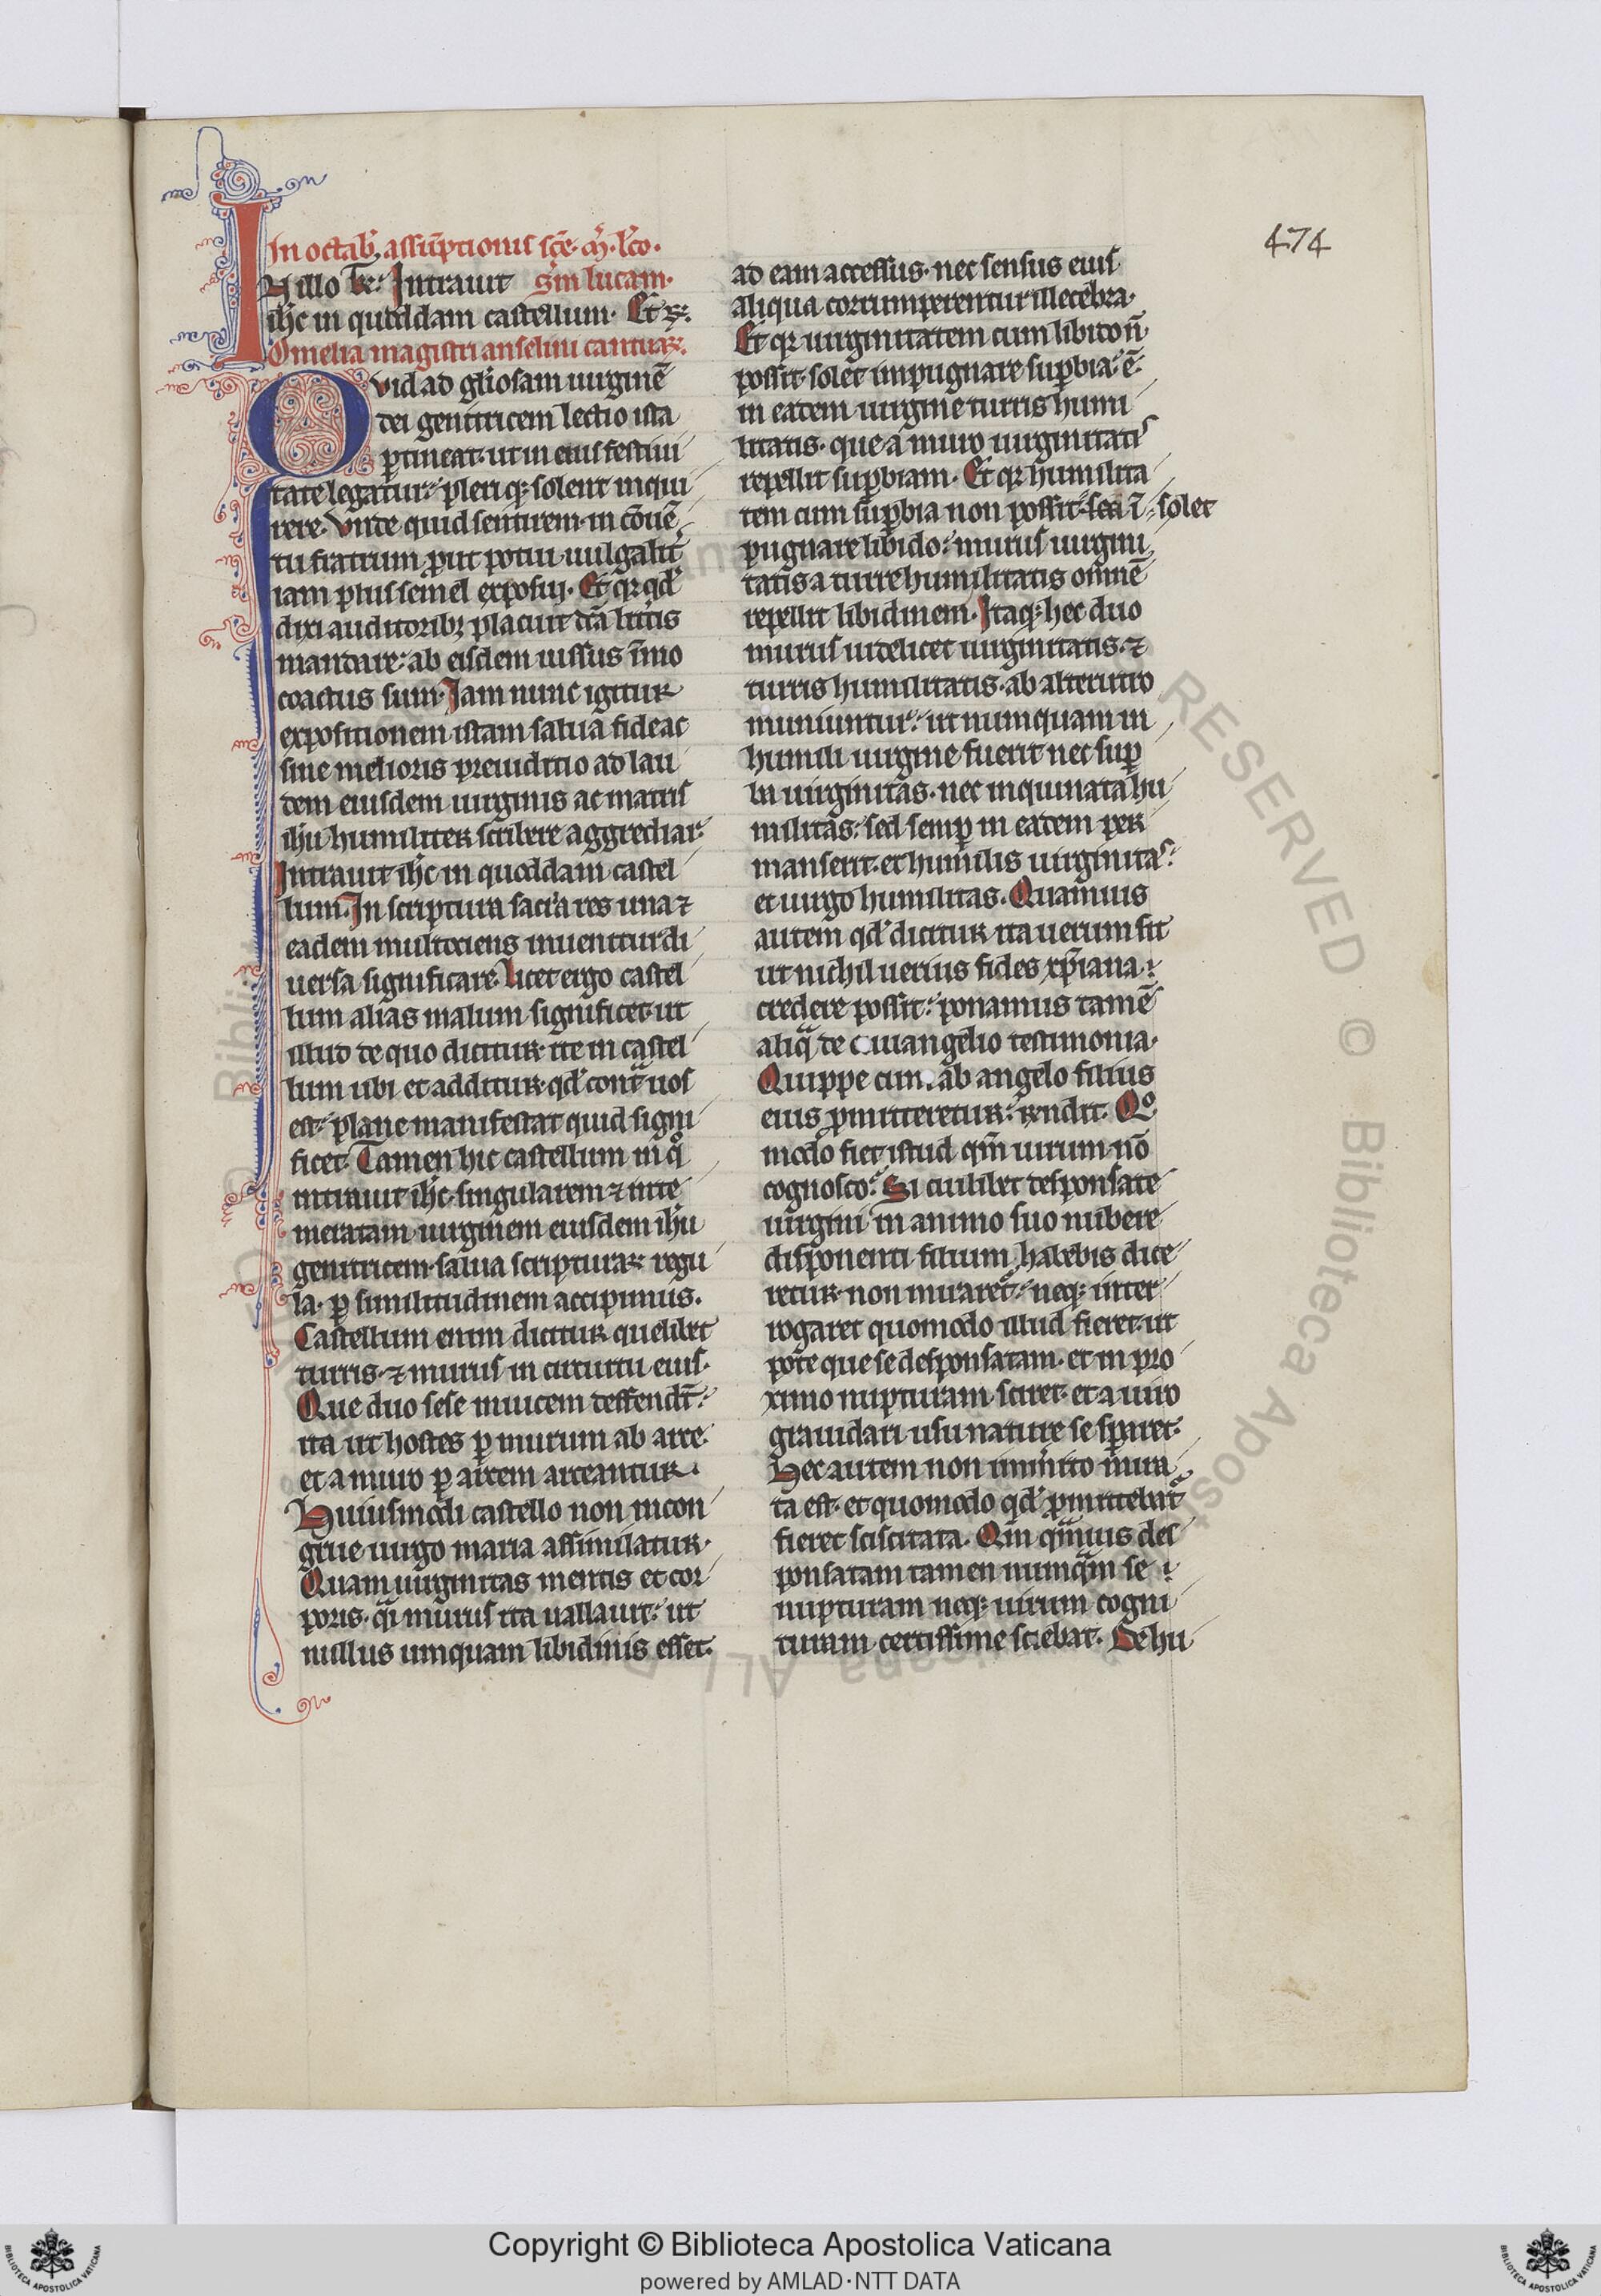 474
In octab̄. assūptionis sc̄e. m̄. lc̄o.
IN illo tꝑe. Intrauit sm̄ lucam.
ih̄c in quoddam castellum. Et r̄.
Omelia magistri anselmi cantuaꝝ.
Quid ad gl̄iosam uirginē
dei genitricem lectio ista
ꝑtineat. ut in eius festiui
tate legatur. pleriqꝫ solent inqui
rere. Vnde quid sentirem. in cōuē
tu fratrum ꝓut potui uulgarit̄
iam plus semel exposui. Et qꝛ qd̄
dixi auditoribꝫ placuit. ea litt̄is
mandare. ab eisdem iussus īmo
coactus sum. Iam nunc igitur
expositionem istam salua fide ac
sine melioris preiuditio ad lau
dem eiusdem uirginis ac matris
ih̄u humiliter scribere aggrediar.
Intrauit ih̄c in quoddam castel
lum. In scriptura sacra res una ⁊
eadem multociens inuenitur di
uersa significare. Licet ergo castel
lum alias malum significet. ut
illud de quo dicitur. ite in castel
lum ubi et additur. qd̄ contᵃ uos
est. plane manifestat quid signi
ficet. Tamen hic castellum in qͦ
intrauit ih̄c. singularem ⁊ inte
meratam uirginem eiusdem ih̄u
genitricem. salua scripturaꝝ regu
la. ꝑ similitudinem accipimus.
Castellum enim dicitur quelibet
turris. ⁊ murus in circuitu eius.
Que duo sese inuicem deffendt̄.
ita ut hostes ꝑ murum ab arce.
et a muro ꝑ arcem arceantur.
Huiusmodi castello non incon
grue uirgo maria assimilatur.
Quam uirginitas mentis et cor
poris. qᵃi murus ita uallauit. ut
nullus umquam libidinis esset.
ad eam accessus. nec sensus eius
aliqua corrumperentur illecebra.
Et qꝛ uirginitatem cum libito n̄
possit. solet impugnare suꝑbia. ē.
in eadem uirgine turris humi
litatis. que a muro uirginitatis
repellit suꝑbiam. Et qꝛ humilita
tem cum suꝑbia non possit. solet ī
pugnare libido. murus uirgini
tatis a turre humilitatis omnē
repellit libidinem. Itaqꝫ hec duo
murus uidelicet uirginitatis. ⁊
turris humilitatis. ab alterutro
muniuntur. ut numquam in
humili uirgine fuerit nec suꝑ
ba uirginitas. nec inquinata hu
militas. sed semꝑ in eadem per
manserit. et humilis uirginitas.
et uirgo humilitas. Quamuis
autem qd̄ dicitur ita uerum sit
ut nichil uerius fides xp̄iana
credere possit. ponamus tamē
aliqᵃ de euuangelio testimonia.
Quippe cum ab angelo filius
eius ꝓmitteretur. r̄ndit. Qͦ
modo fiet istud qm̄ uirum nō
cognosco. Si cuilibet desponsate
uirgini in animo suo nubere
disponenti. filium habebis dice
retur. non miraret̄. neqꝫ inter
rogaret quomodo illud fieret. ut
pote que se desponsatam. et in pro
ximo nupturam sciret. et a uiro
grauidari usu nature se sꝑaret.
Hec autem non inm̄ito mira
ta est. et quomodo qd̄ ꝓmittebat̄
fieret sciscitata. Qm̄ qᵃmuis des
ponsatam tamen numqᵃm se
nupturam neqꝫ uirum cogni
turam certissime sciebat. De hu
Copyright © Biblioteca Apostolica Vaticana
powered by AMLAD·NTT DATA